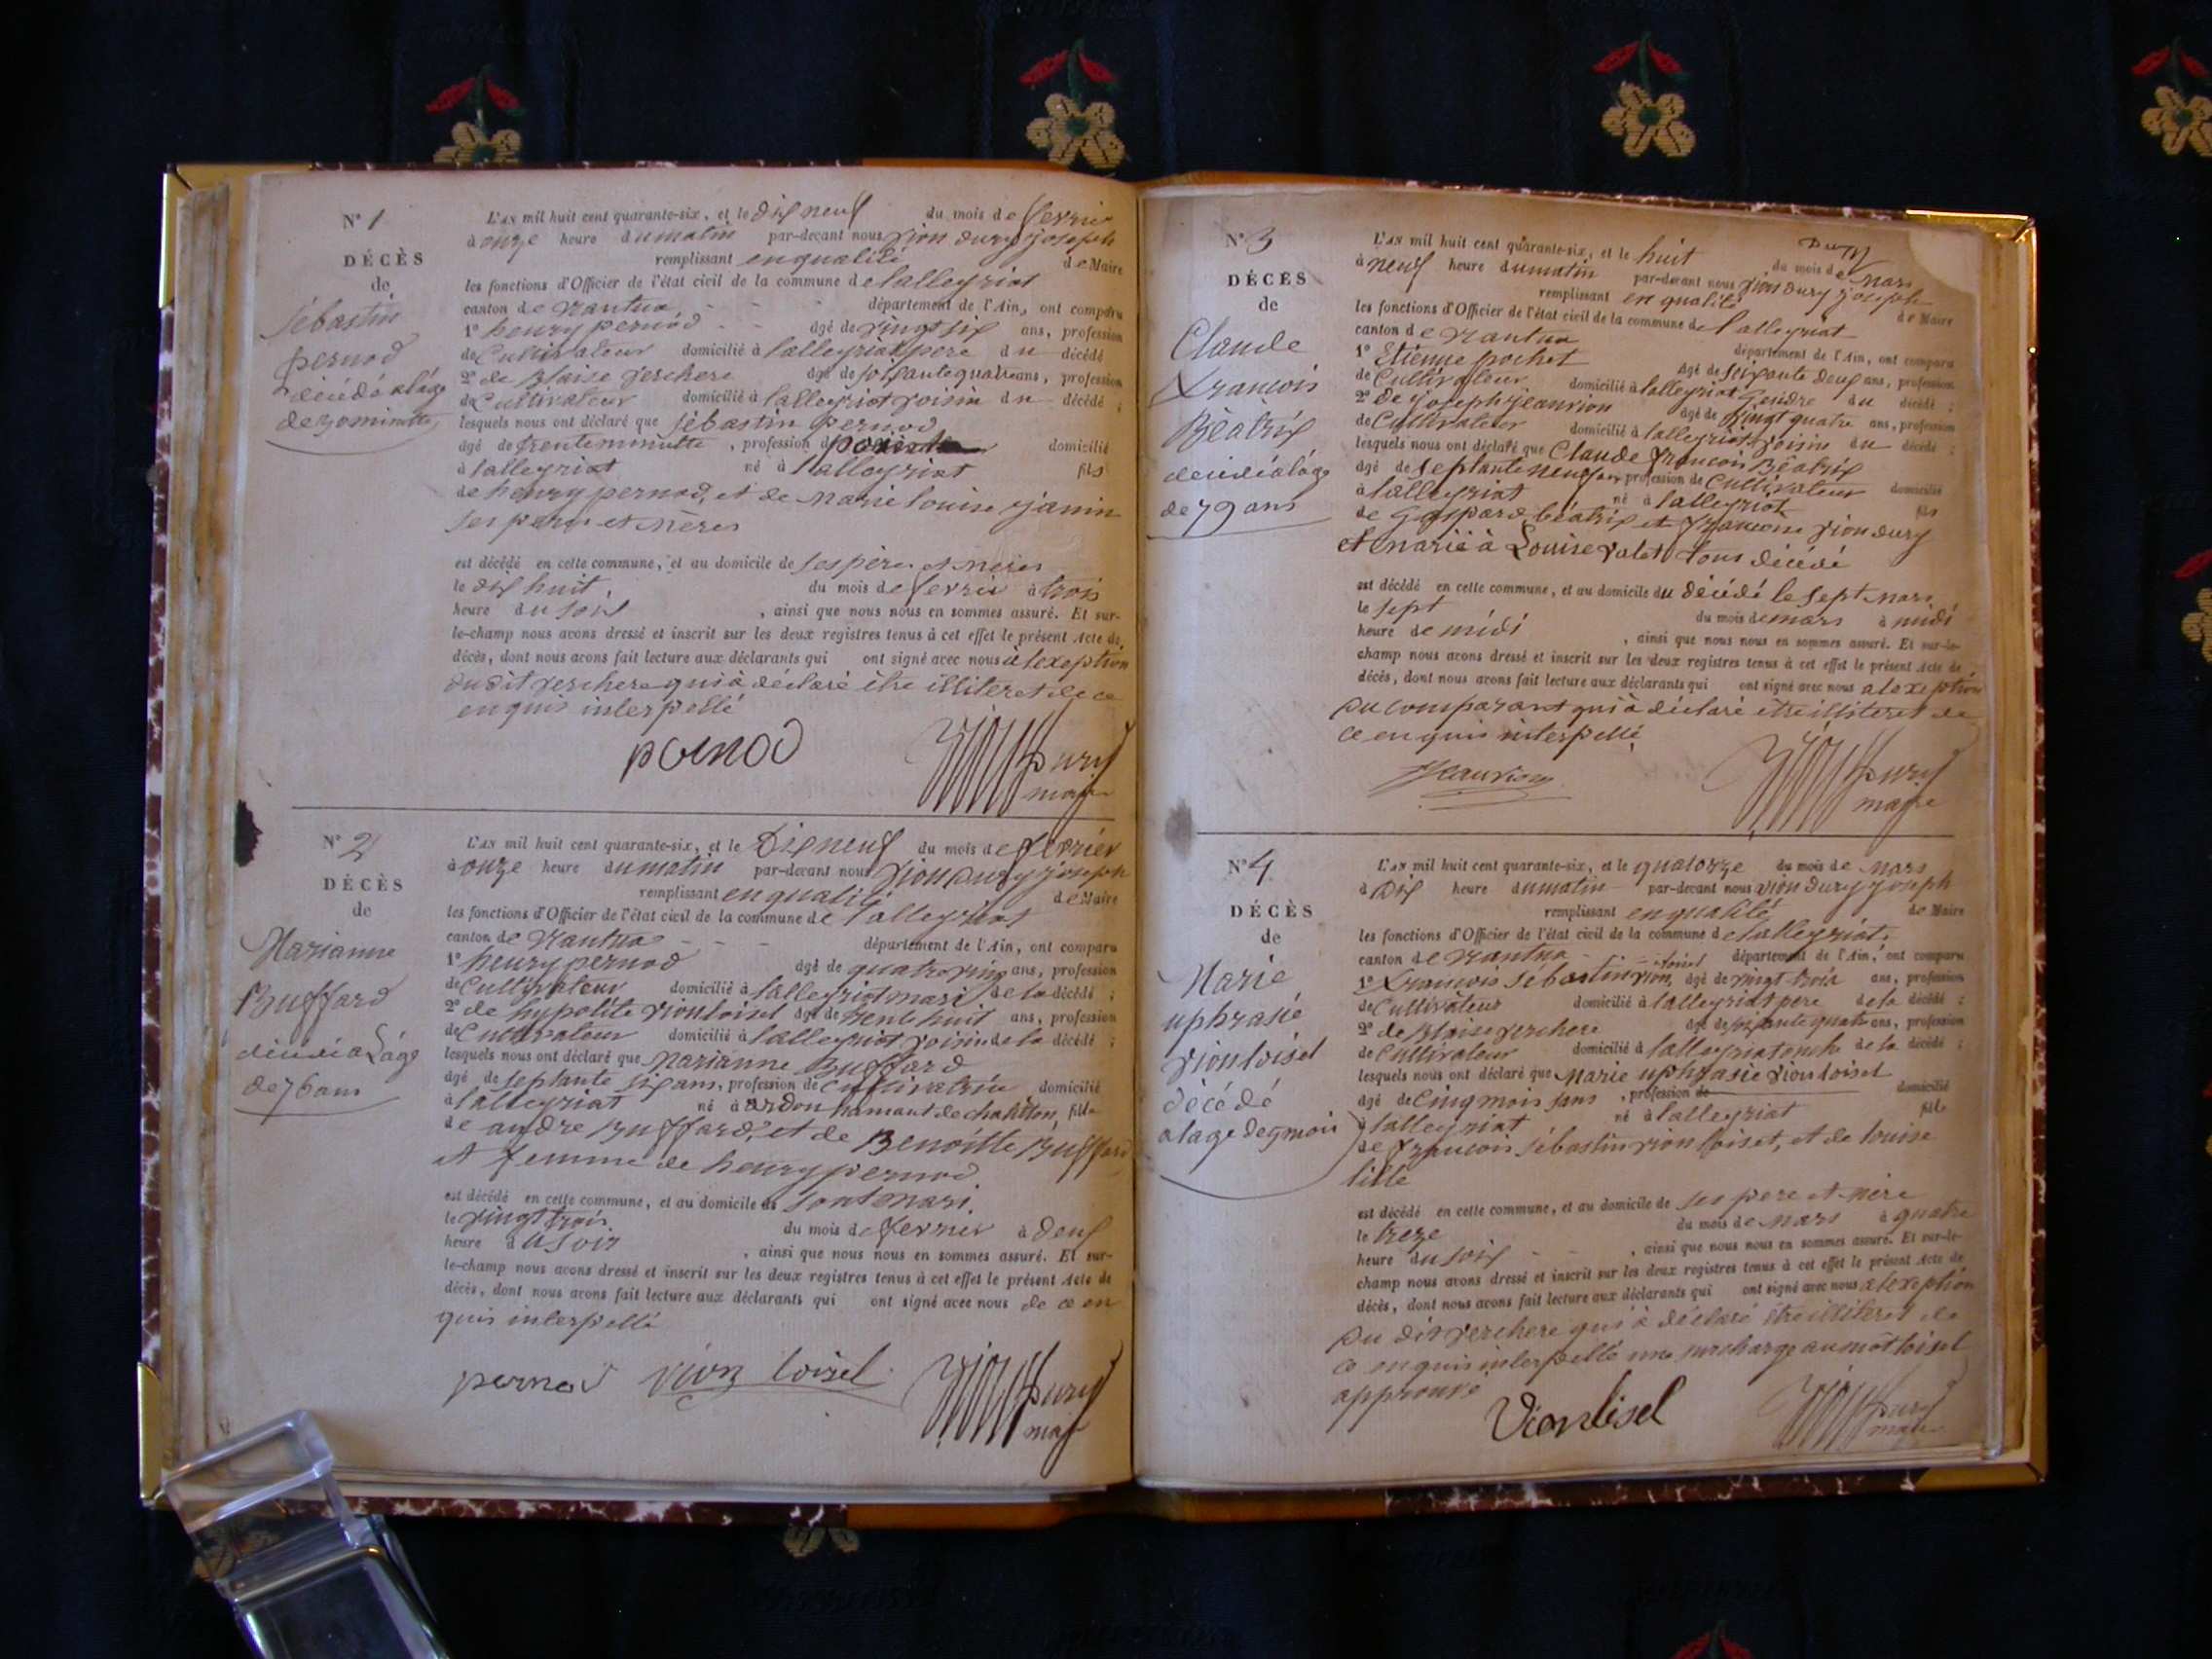 N° 1
DÉCÈS
de
Sébastin
pernod
décédé a lâge
de 30 minutte
L'AN mil huit cent quarante-six, et le dix neuf du mois de fevrier
à onze heure du matin par-devant nous vion dury joseph
remplissant en qualité de Maire
les fonctions d'Officier de l'état civil de la commune de lalleyriat
canton de nantua département de l'Ain, ont comparu
1° henry pernod âgé de vingt six ans, profession
de Cultivateur domicilié à lalleyriat pere du décédé
2° de Blaise verchere âgé de soixante quatre ans, profession
de Cultivateur domicilié à lalleyriat voisin du décédé ;
lesquels nous ont déclaré que sébastin pernod
âgé de trente minutte, profession de domicilié
à lalleyriat né à lalleyriat fils
de henry pernod, et de Marie louise janin
ses pere et Mères
est décédé en cette commune, et au domicile de ses pères et Mères
le dix huit du mois de fevrier à trois
heure du soir, ainsi que nous nous en sommes assuré. Et sur-
le-champ nous avons dressé et inscrit sur les deux registres tenus à cet effet le présent Acte de
décès, dont nous avons fait lecture aux déclarants qui ont signé avec nous à lexeption
du dit verchere qui à déclaré être illiteret de ce
enquis interpellé
pernod Vion Dury
maire
N° 2
DÉCÈS
de
Marianne
Buffard
décédé a Lâge
de 76 ans
L'AN mil huit cent quarante-six, et le Dix neuf du mois de fevrier
à onze heure du matin par-devant nous Vion Dury joseph
remplissant en qualité de Maire
les fonctions d'Officier de l'état civil de la commune de lalleyriat
canton de Nantua département de l'Ain, ont comparu
1° henry pernod âgé de quatre vingt ans, profession
de Cultivateur domicilié à lalleyriat mari de la décédé ;
2° de hypolite vion loiset âgé de trente huit ans, profession
de Cultivateur domicilié à lalleyriat voisin de la décédé ;
lesquels nous ont déclaré que Marianne Buffard
âgé de septante six ans, profession de Cultivatrice domicilié
à lalleyriat né à ardon hamaut de chatillon, fille
de andre Buffard, et de Benoitte Buffard
et femme de henry pernod
est décédé en cette commune, et au domicile de sont mari
le vingt trois du mois de fevrier à deux
heure du soir, ainsi que nous nous en sommes assuré. Et sur-
le-champ nous avons dressé et inscrit sur les deux registres tenus à cet effet le présent Acte de
décès, dont nous avons fait lecture aux déclarants qui ont signé avec nous de ce en
quis interpellé
pernod vion loisel Vion Dury
maire
N° 3
DÉCÈS
de
Claude
francois
Béatrix
décédé a lâge
de 79 ans
Dury
L'AN mil huit cent quarante-six, et le huit du mois de Mars
à neuf heure du matin par-devant nous vion dury joseph
remplissant en qualité de Maire
les fonctions d'Officier de l'état civil de la commune de lalleyriat
canton de nantua département de l'Ain, ont comparu
1° Etienne pochet âgé de soixante deux ans, profession
de Cultivateur domicilié à lalleyriat Gendre du décédé ;
2° de joseph jeanvion âgé de vingt quatre ans, profession
de Cultivateur domicilié à lalleyriat voisin du décédé ;
lesquels nous ont déclaré que Claude francois Béatrix
âgé de septante neuf ans profession de Cultivateur domicilié
à lalleyriat né à lalleyriat fils
de Gaspard béatrix et francoise vion dury
et marié à Louise valet tous décédé
est décédé en cette commune, et au domicile du décédé le sept Mars
le sept du mois de mars à midi
heure de midi, ainsi que nous nous en sommes assuré. Et sur-le-
champ nous avons dressé et inscrit sur les deux registres tenus à cet effet le présent Acte de
décès, dont nous avons fait lecture aux déclarants qui ont signé avec nous a lexeption
du comparant qui à déclaré etre illiteret de
ce enquis interpellé
Jeanvion Vion Dury
maire
N° 4
DÉCÈS
de
Marie
uphrasie
vion loisel
décédé
a lage de 5 mois
L'AN mil huit cent quarante-six, et le quatorze du mois de Mars
à Dix heure du matin par-devant nous vion dury joseph
remplissant en qualité de Maire
les fonctions d'Officier de l'état civil de la commune de lalleyriat
canton de nantua département de l'Ain, ont comparu
loisel
1° francois sébastin vion, âgé de vingt trois ans, profession
de Cultivateur domicilié à lalleyriat pere de la décédé ;
2° de Blaise verchere âgé de soixante quatre ans, profession
de Cultivateur domicilié à lalleyriat oncle de la décédé ;
lesquels nous ont déclaré que Marie uphrasie vion loisel
âgé de Cinq mois sans, profession de domicilié
à lalleyriat né à lalleyriat fille
de francois sébastin vion loiset, et de louise
lille
est décédé en cette commune, et au domicile de ses pere et mère
le treze du mois de Mars à quatre
heure du soir, ainsi que nous nous en sommes assuré. Et sur-le-
champ nous avons dressé et inscrit sur les deux registres tenus à cet effet le présent Acte de
décès, dont nous avons fait lecture aux déclarants qui ont signé avec nous a lexeption
du dit verchere qui à déclaré être illiteret de
ce enquis interpellé une surcharge au mot loisel
approuvé
Vionloisel Vion Dury
maire